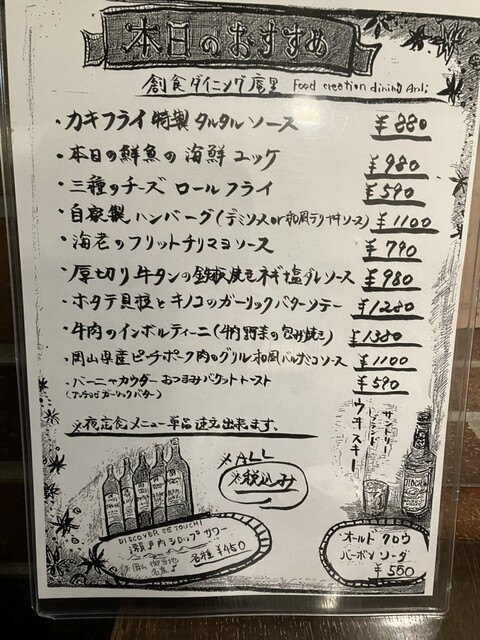 本日のおすすめ
創食ダイニング庵里 Food creation dining Anli
・カキフライ特製タルタルソース ¥880
・本日の鮮魚の海鮮ユッケ ¥980
・三種のチーズロールフライ ¥590
・自家製ハンバーグ(デミソースor和風テリヤキソース) ¥1100
・海老のフリットチリマヨソース ¥790
・厚切り牛タンの鉄板焼きネギ塩ダレソース ¥980
・ホタテ貝柱とキノコのガーリックバターソテー ¥1280
・牛肉のインボルティーニ(牛肉野菜の包み焼き) ¥1380
・岡山県産ピーチポーク肉のグリル和風バルサミコソース ¥1100
・バーニャカウダーおつまみバケットトースト ¥590
(アンチョビガーリックバター)
※夜定食メニュー単品注文出来ます。
※ALL
※税込み
サントリー
ブランド
ウヰスキー
DISCOVER SETOUCHI
瀬戸内シロップサワー
各種 ¥450
オールドクロウ
バーボンソーダ
¥550